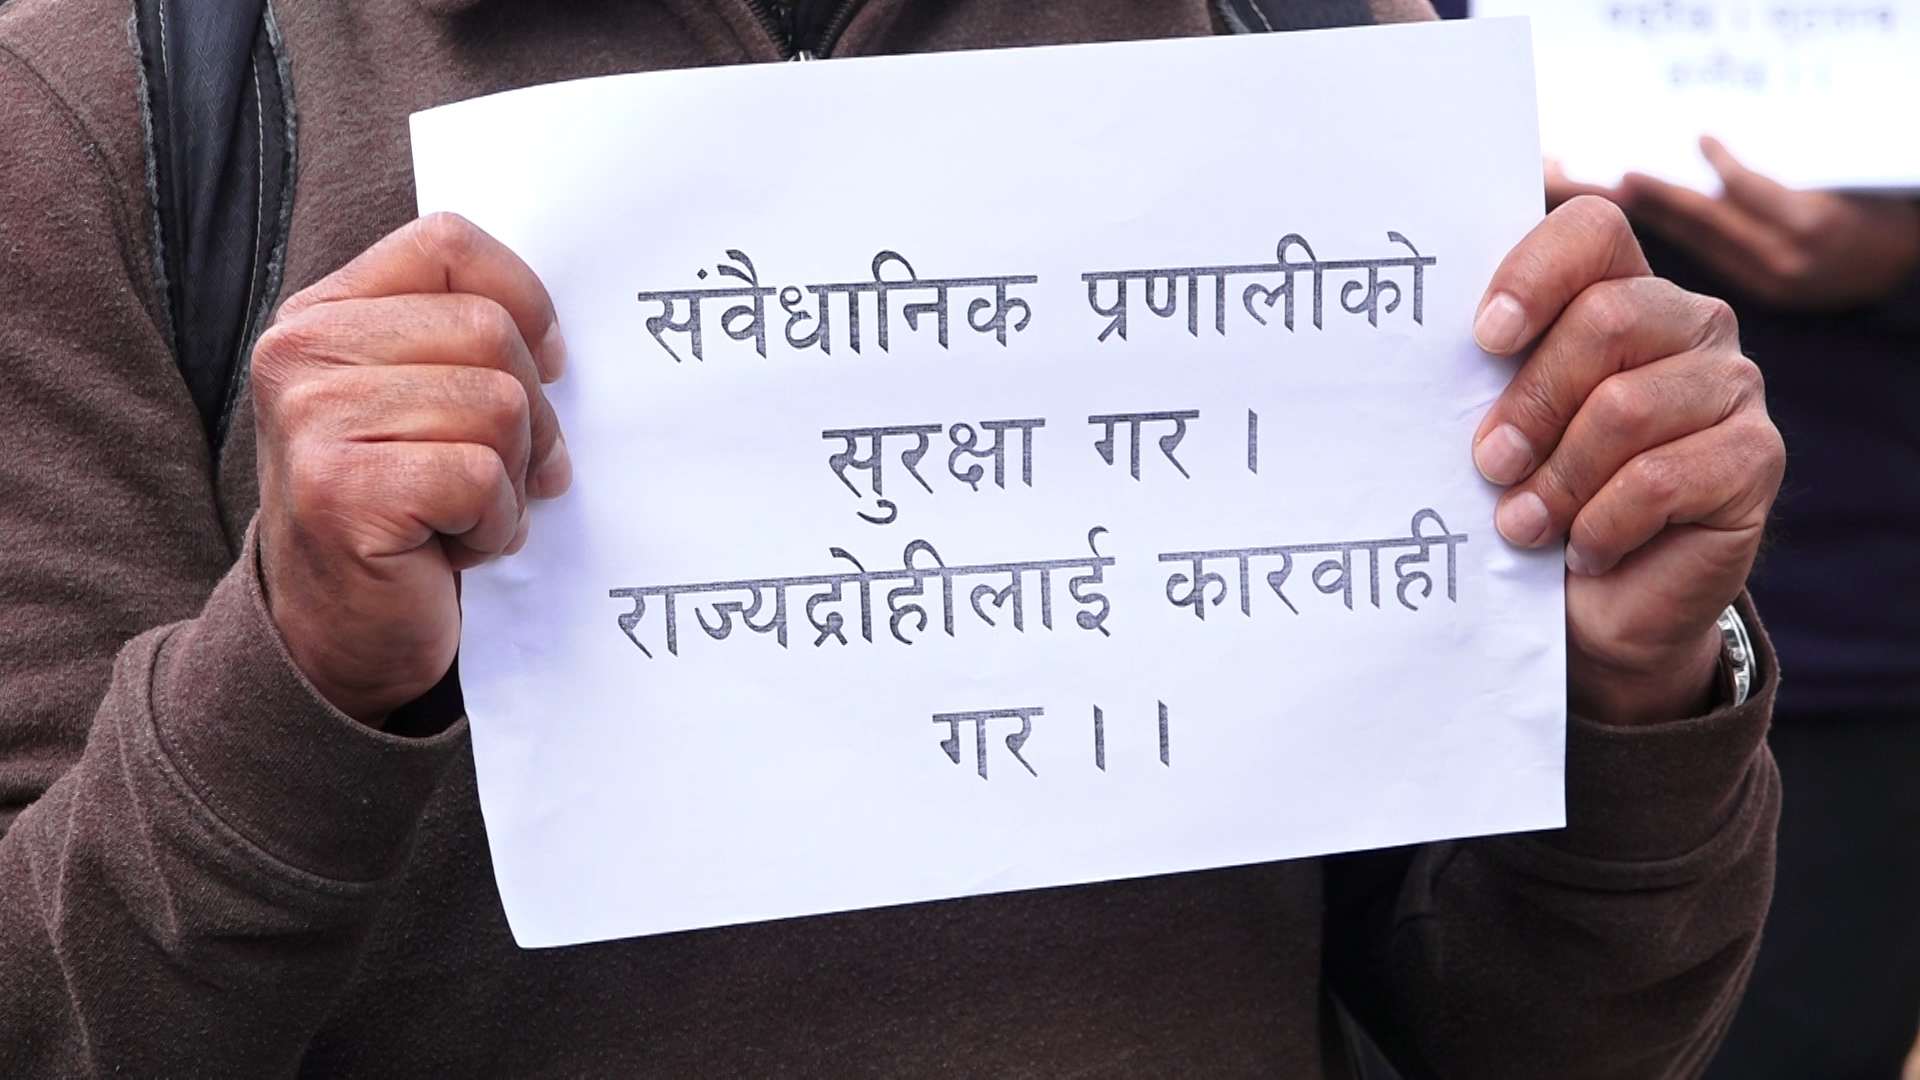 संवैधानिक प्रणालीको
सुरक्षा गर ।
राज्यद्रोहीलाई कारवाही
गर ।।